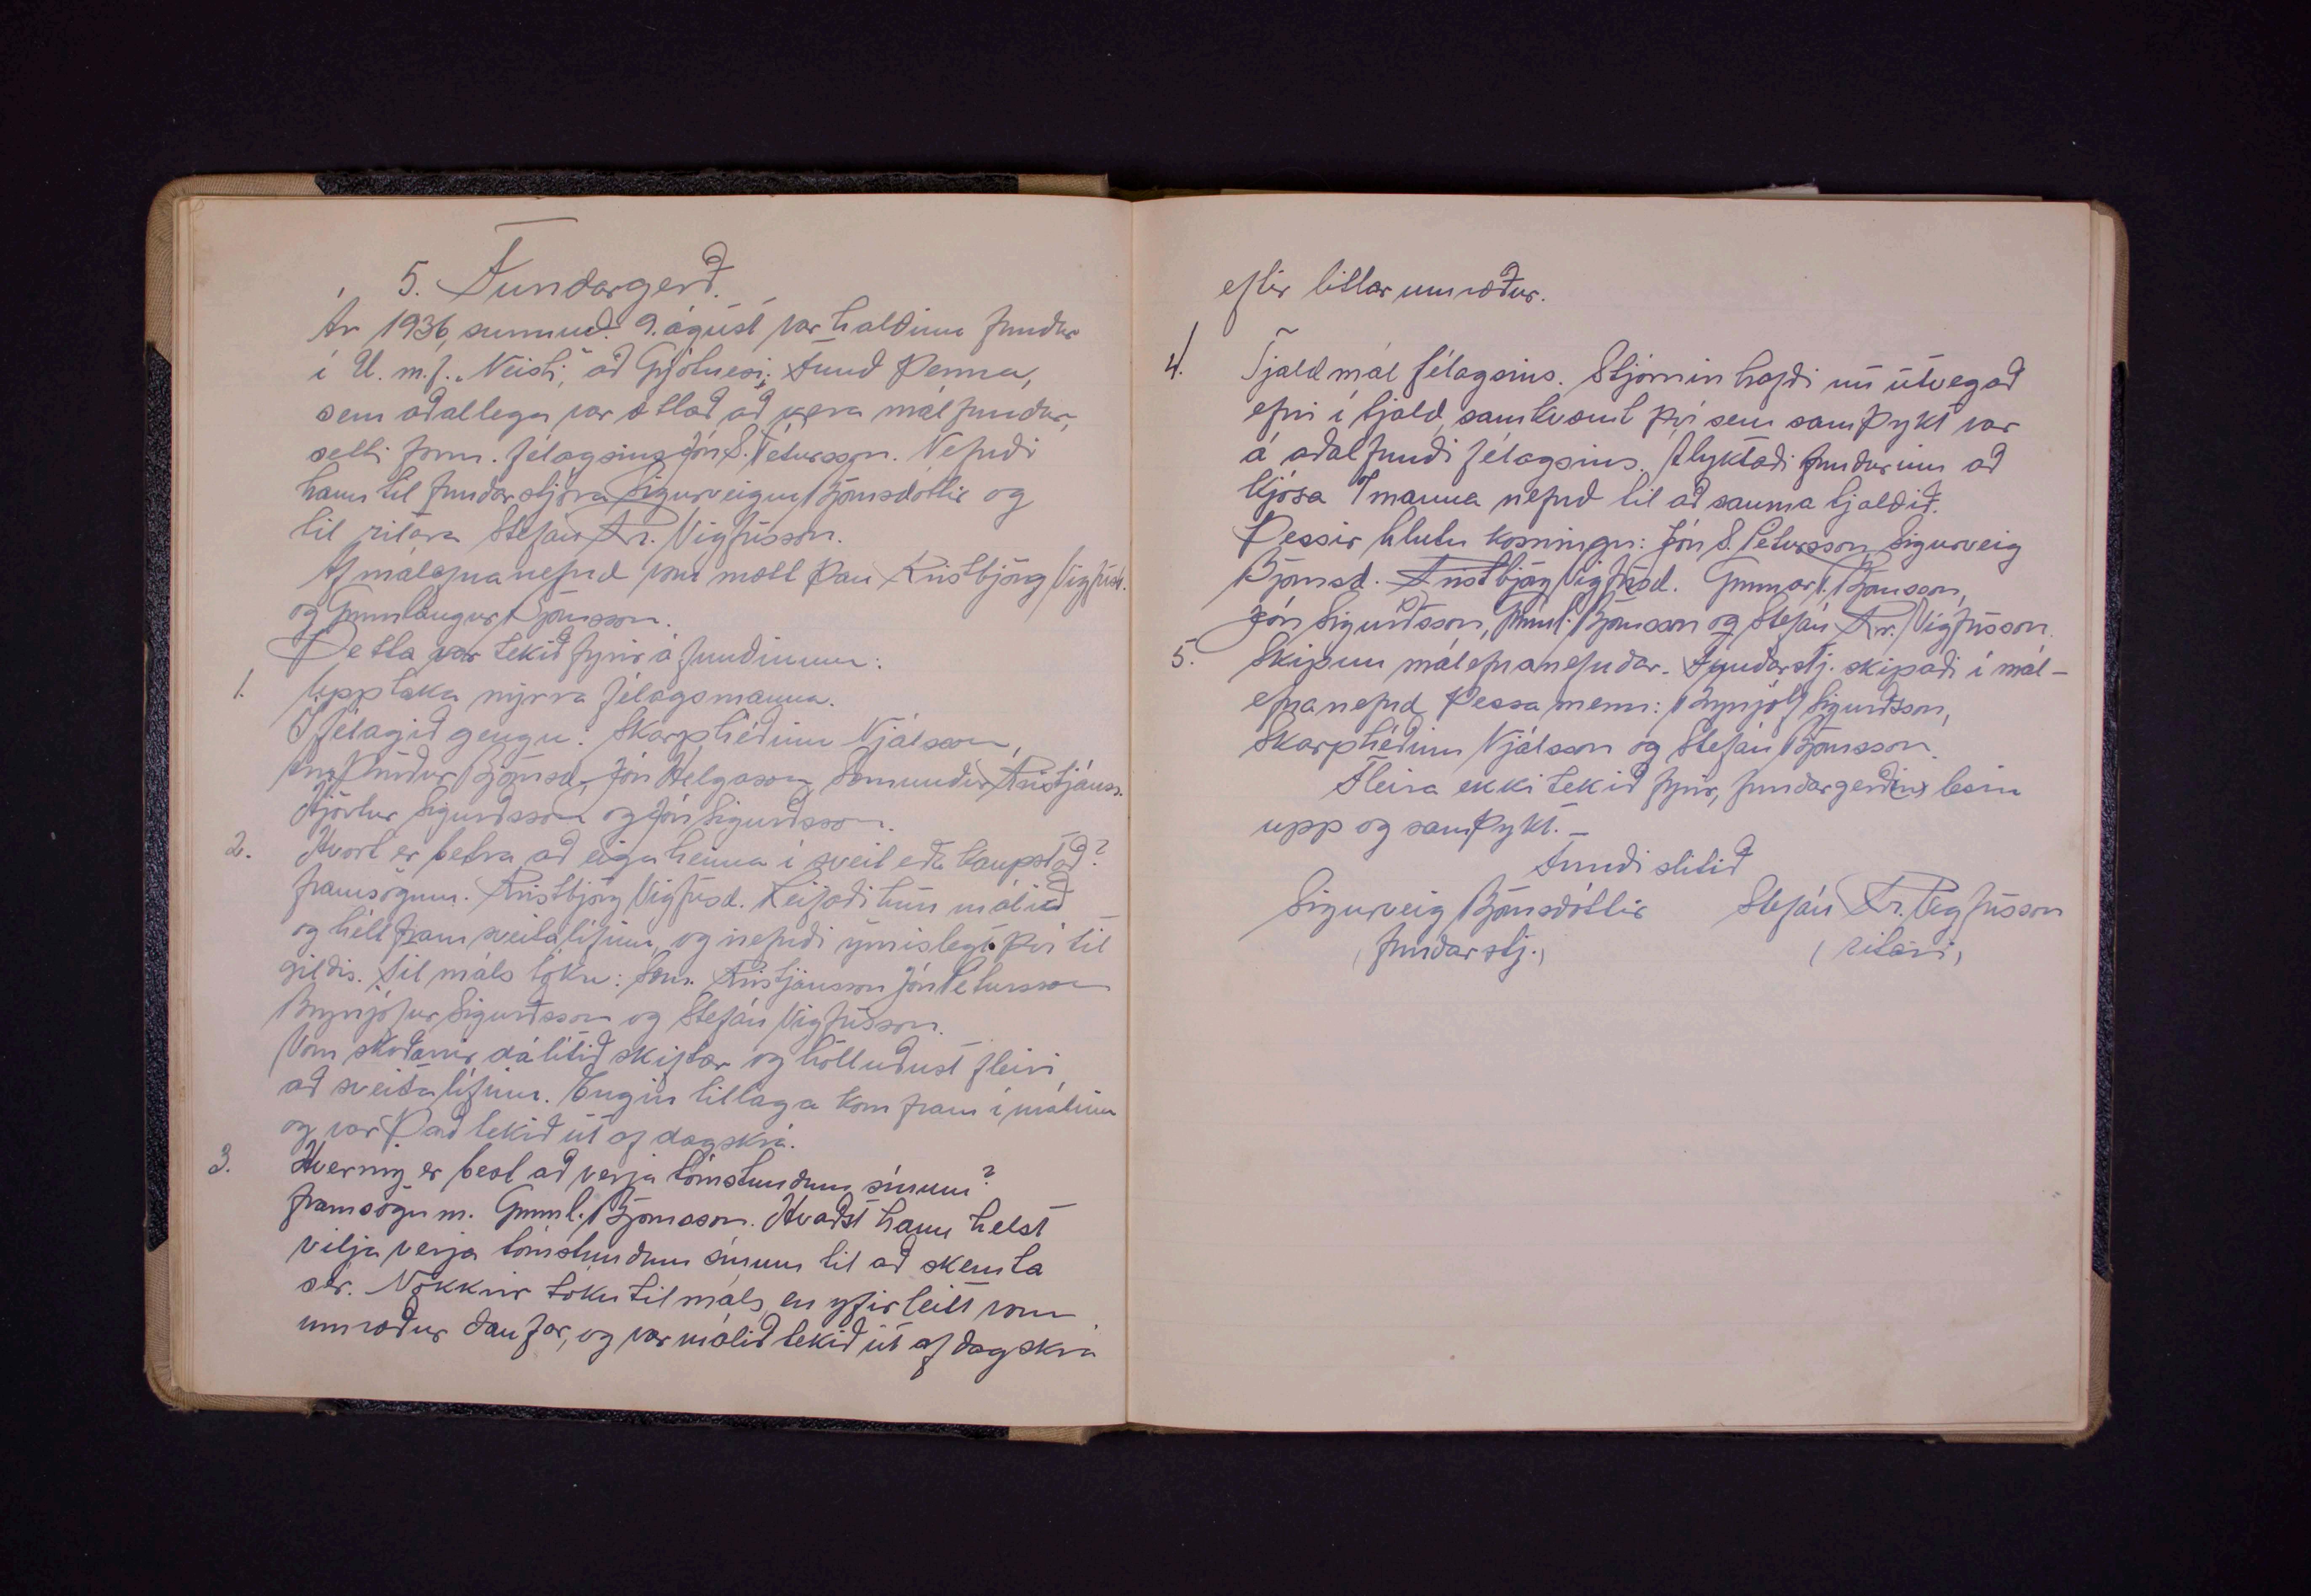 5. Fundargerð.
Ár 1936, sunnud. 9. ágúst var haldinn fundur
í U.m.f. „Neisti", að Grjótnesi. Fund þenna,
sem aðallega var ætlað að vera málfundur,
setti form. félagsins Jón S. Pétursson. Nefndi
hann til fundarstjóra Sigurveigu Björnsdóttir og
til ritara Stefán Kr. Vigfússon.
Af málefnanefnd voru mætt þau Kristbjörg Vigfúsd.
og Gunnlaugur Björnsson.
Þetta var tekið fyrir á fundinum:
1. Upptaka nýrra félagsmanna.
Í félagið gengu: Skarphéðinn Njálsson,
Arnþrúður Björnsd., Jón Helgason, Sæmundur Kristjánss.
Hjörtur Sigurðsson og Jón Sigurðsson.
2. Hvort er betra að eiga heima í sveit eða kaupstað?
framsögum. Kristbjörg Vigfúsd. Reifaði hún málið
og hélt fram sveitalífinu, og nefndi ýmislegt því til
gildis. Til máls tóku: Sæm. Kristjánsson Jón Pétursson
Brynjófur Sigurðsson og Stefán Vigfússon.
Voru skoðanir dálítið skiptar og hölluðust fleiri
að sveitalífinu. Engin tillaga kom fram í málinu
og var það tekið út af dagskrá.
3. Hvernig er best að verja tómstundum sínum?
framsögum. Gunnl. Björnsson. Kvaðst hann helst
vilja verja tómstundum sínum til að skemta
sér. Nokkrir tóku til máls, en yfirleitt voru
umræður daufar, og var málið tekið út af dagskrá
eftir litlar umræður.
4. Tjaldmál félagsins. Stjórnin hafði nú útvegað
efni í tjald, samkvæmt því sem samþykt var
á aðalfundi félagsins. Ályktaði fundurinn að
kjósa 7 manna nefnd til að sauma tjaldið.
Þessir hlutu kosningu: Jón S. Pétursson, Sigurveig
Björnsd. Kristbjörg Vigfúsd. Gunnar Björnsson,
Jón Sigurðsson, Gunnl. Björnsson og Stefán Kr. Vigfússon.
5. Skipun málefnanefndar. Fundarstj. skipaði í mál-
efnanefnd þessa menn: Brynjólf Sigurðsson,
Skarphéðinn Njálsson og Stefán Björnsson.
Fleira ekki tekið fyrir, fundargerðin lesin
upp og samþykt. –
Fundi slitið
Sigurveig Björnsdóttir Stefán Kr. Vigfússon
(fundarstj.) (ritari)